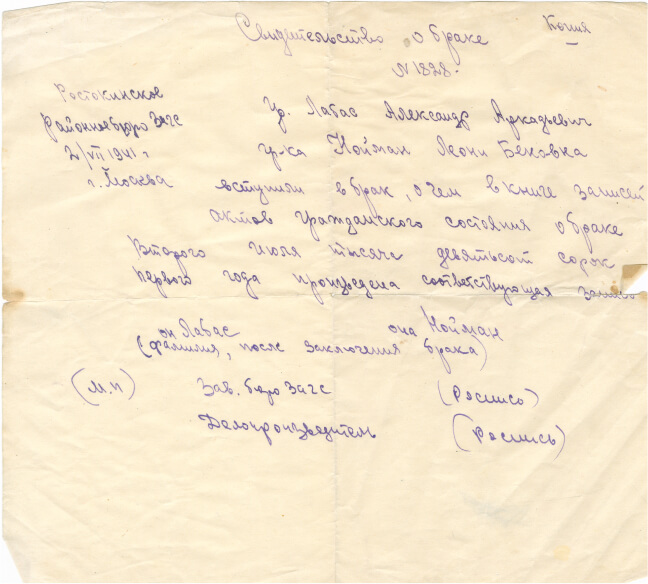 Копия
Свидетельство о браке
N 1828.
Ростокинское
Районное бюро Загс
2/VII 1941 г
г. Москва
Гр. Лабас Александр Аркадьевич
гр-ка Нойман Леони Бековна
вступили в брак, о чем в книге записей
актов гражданского состояния о браке
Второго июля тысяча девятьсот сорок
первого года произведена соответствующая запись
он Лабас она Нойман
(фамилия, после заключения брака)
(М.П) Зав. бюро Загс (Роспись)
Делопроизводитель (Роспись)